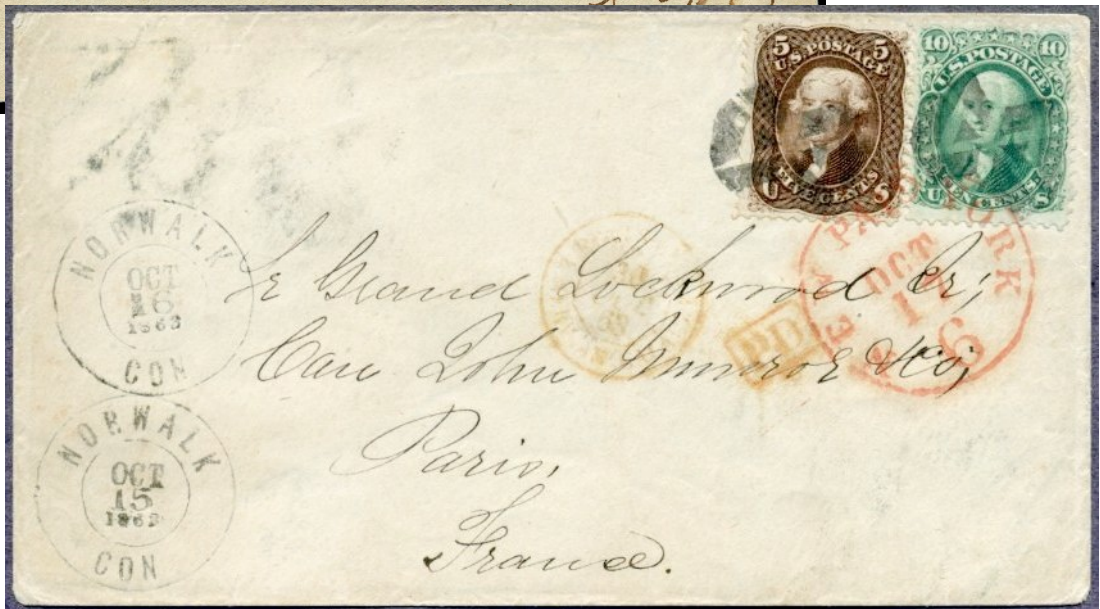 5 5
U.S. POSTAGE
FIVE CENTS
U S
10 10
U.S. POSTAGE
TEN CENTS.
U S
NORWALK
OCT
16
1863
CON
NORWALK
OCT
15
1863
CON
NEW PAID YORK
OCT
6
PD
Le Grand Lockwood Jr;
Care John Munroe & Co;
Paris,
France.